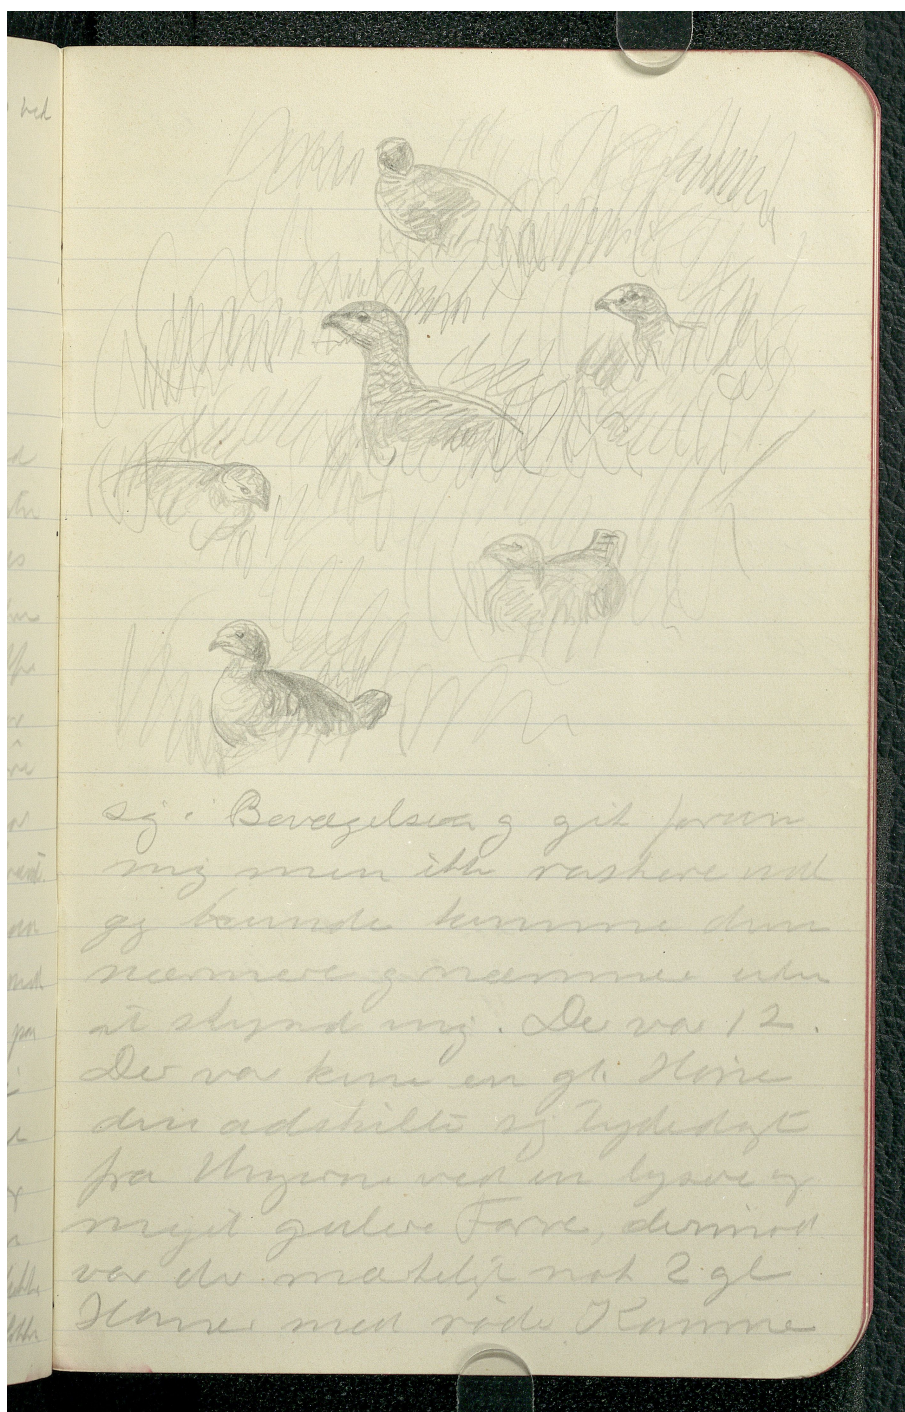 ved
sig i Bevægelse og gik foran
mig men ikke raskere end
jeg kunde komme dem
nærmere og nærmere uden
at skynd mig. De var 12.
Der var kun en gl. Høne
den adskilte sig tydeligt
fra Ungerne ved en lysere og
meget gulere Farve, derimod
var der mærkeligt nok 2 gl
Hanner med røde Kamme